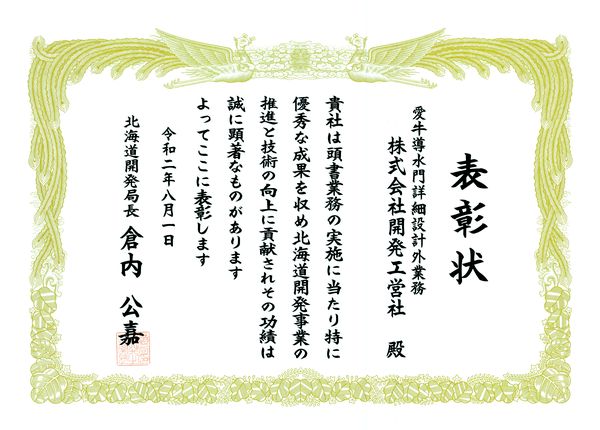 表彰状
愛牛導水門詳細設計外業務
株式会社開発工営社 殿
貴社は頭書業務の実施に当たり特に
優秀な成果を収め北海道開発事業の
推進と技術の向上に貢献されその功績は
誠に顕著なものがあります
よってここに表彰します
令和二年八月一日
北海道開発局長 倉内 公嘉